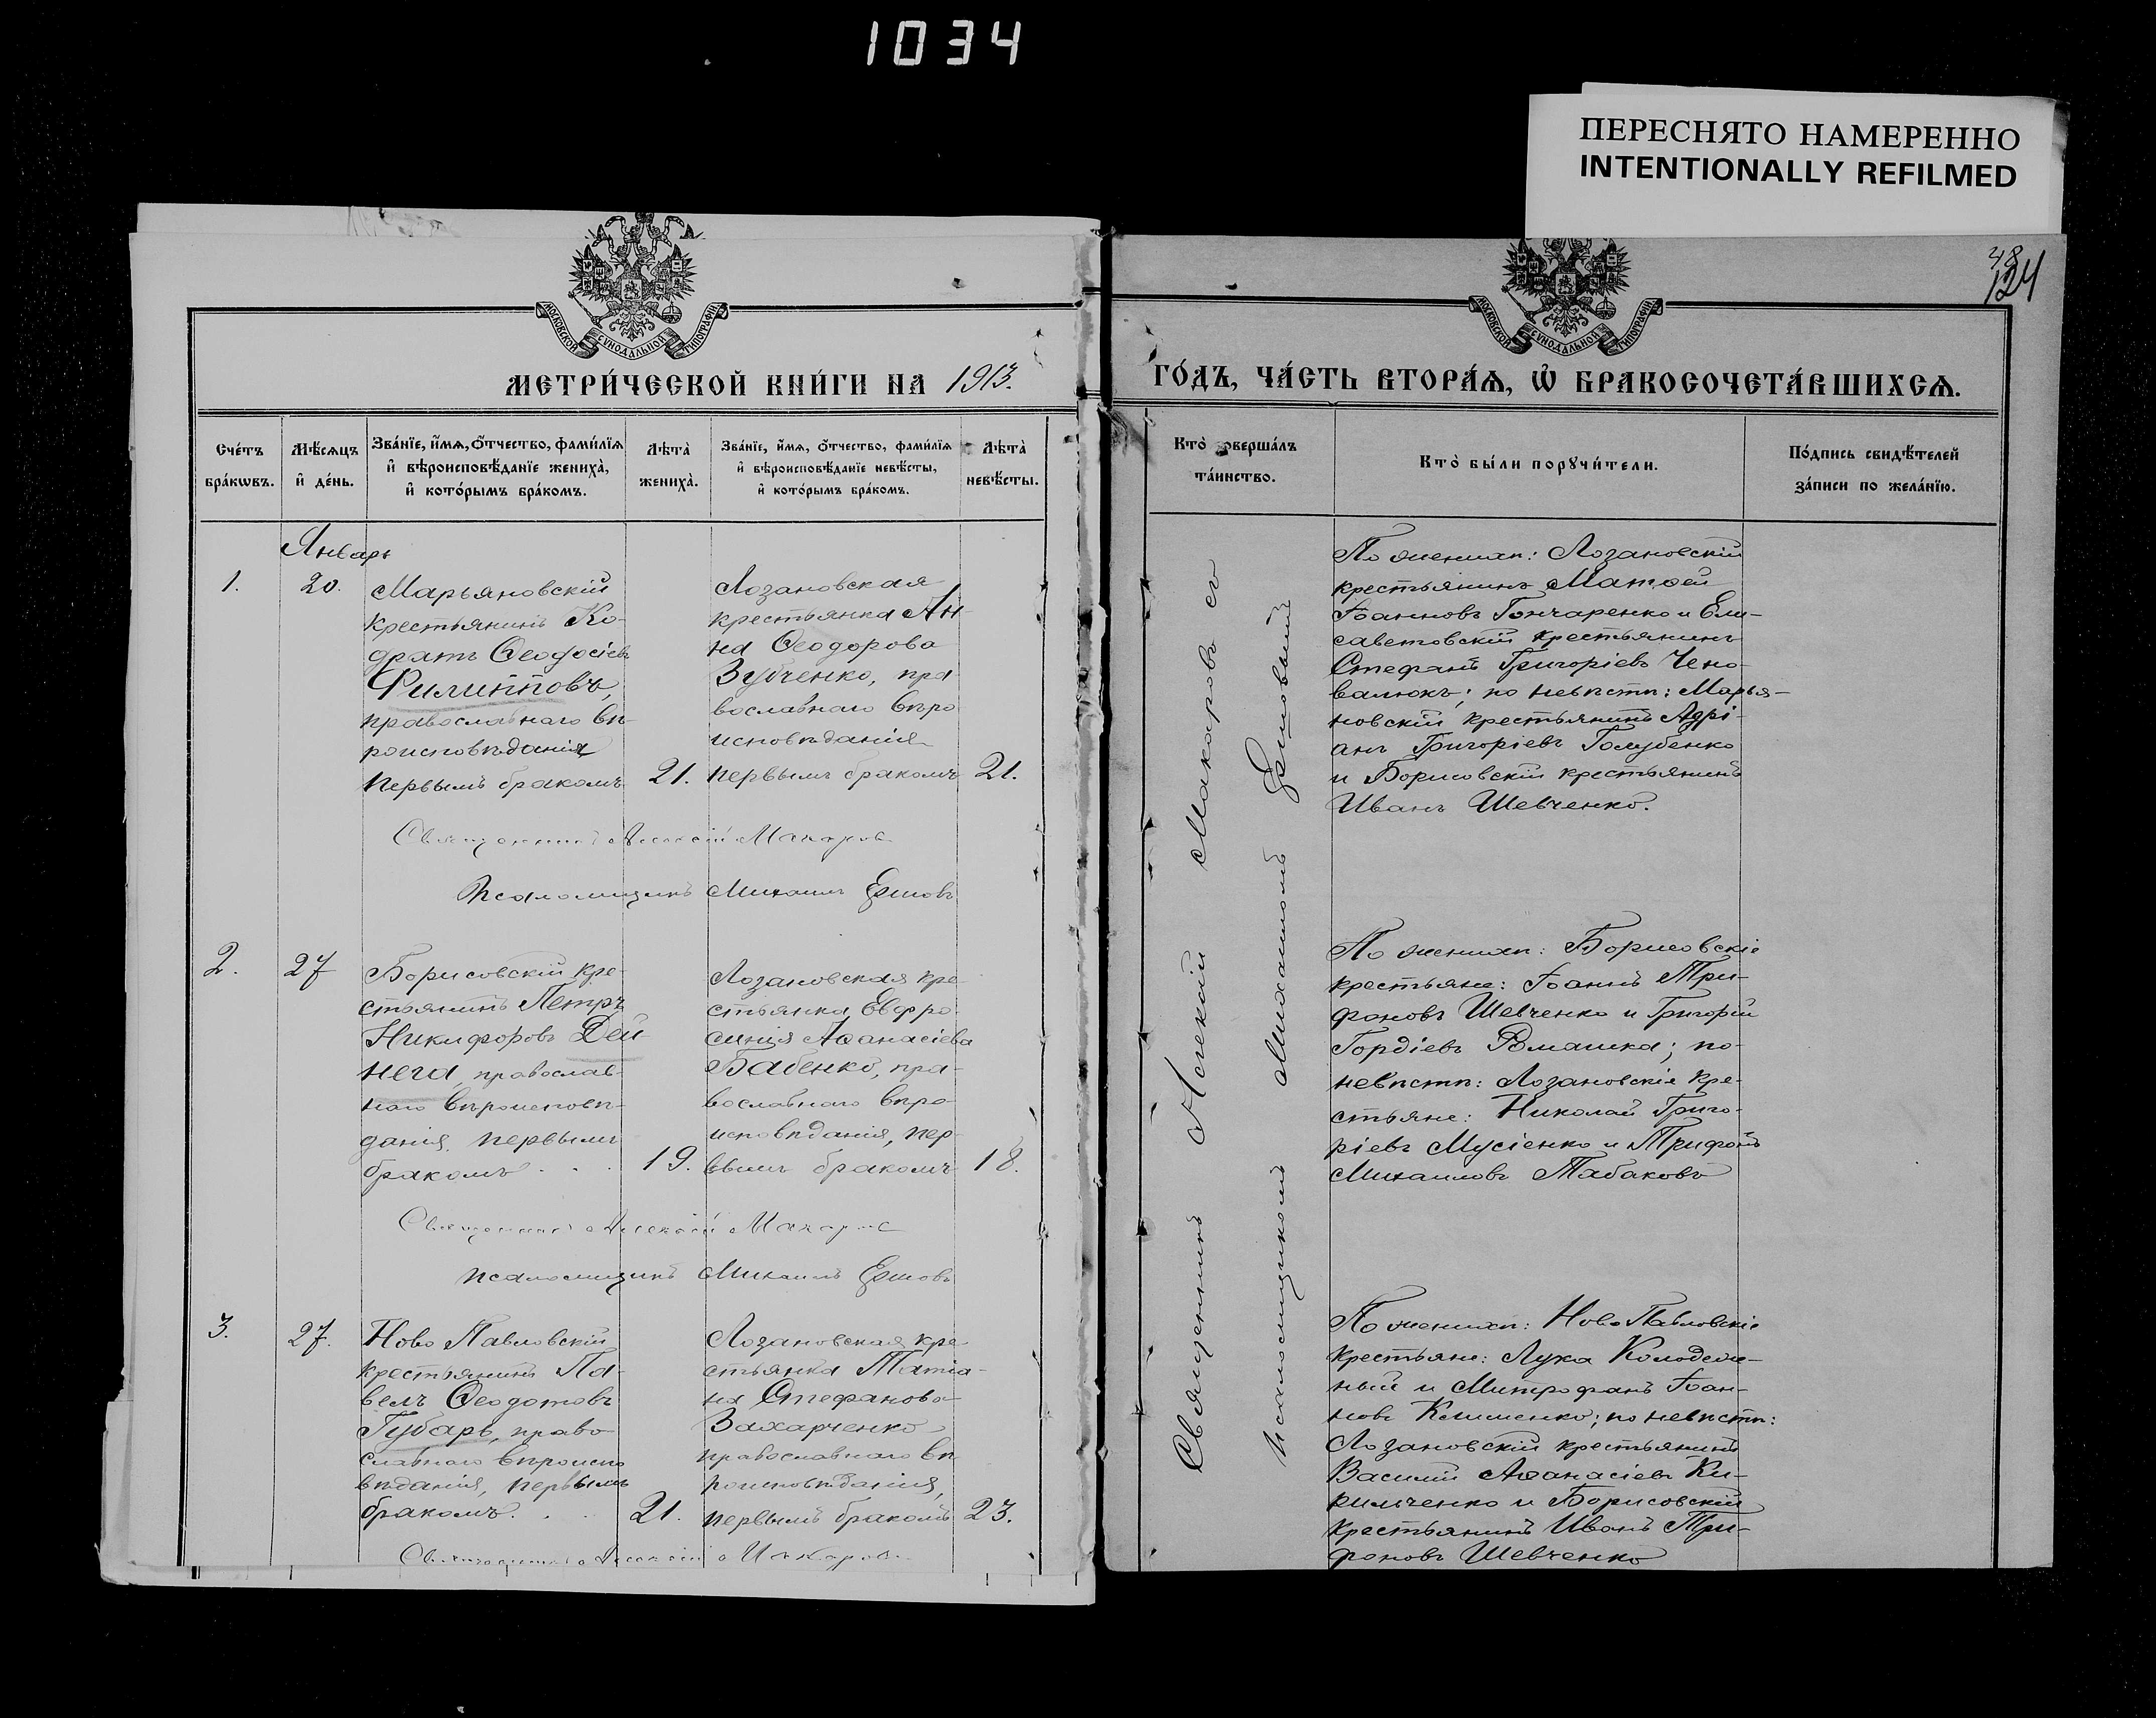 1034
ПЕРЕСНЯТО НАМЕРЕННО
INTENTIONALLY REFILMED
48
124
МОСКОВСКОЙ СѴНОДАЛЬНОЙ ТИПОГРАФІИ
МОСКОВСКОЙ СѴНОДАЛЬНОЙ ТИПОГРАФІИ
МЕТРИ́ЧЕСКОЙ КНИ́ГИ НА 1913.
ГО́ДЪ, ЧА́СТЬ ВТОРА́Ѧ, Ѽ БРАКОСОЧЕТА́ВШИХСѦ.
Сче́тъ
бра́кѡвъ.
Мѣ́сяцъ
и҆ де́нь.
Зва́нїе, и҆́мѧ, ѻ҆́тчество, фами́лїѧ
и҆ вѣроисповѣ́данїе жениха̀,
и҆ кото́рымъ бра́комъ.
Лѣта̀
жениха̀.
Зва́нїе, и҆́мѧ, ѻ҆́тчество, фами́лїѧ
и҆ вѣроисповѣ́данїе невѣ́сты,
и҆ кото́рымъ бра́комъ.
Лѣта̀
невѣ́сты.
Кто̀ соверша́лъ
та́инство.
Кто̀ бы́ли порꙋчи́тели.
По́дпись свидѣ́телей
за́писи по жела́нїю.
Январь
1.
20.
Марьяновскій
крестьянинъ Ко-
дратъ Ѳеодосіевъ
Филипповъ,
православнаго вѣ-
роисповѣданія
первымъ бракомъ
21.
Лозановская
крестьянка Ан-
на Ѳеодорова
Зубченко, пра-
вославнаго вѣро
исповѣданія
первымъ бракомъ
21.
Священникъ Алексій Макаровъ
Псаломщикъ Михаилъ Ершовъ
По женихѣ: Лозановскій
крестьянинъ Матѳей
Іоанновъ Гончаренко и Ели-
саветовскій крестьянинъ
Стефанъ Григоріевъ Чепо-
валюкъ; по невѣстѣ: Марья-
новскій крестьянинъ Адрі-
анъ Григоріевъ Голубенко
и Борисовскій крестьянинъ
Иванъ Шевченко.
2.
27
Борисовскій кре-
стьянинъ Петръ
Никифоровъ Дей-
нега, православ-
наго вѣроисповѣ-
данія, первымъ
бракомъ . . .
19.
Лозановская кре-
стьянка Евфро-
синія Аѳанасіева
Бабенко, пра-
вославнаго вѣро-
исповѣданія, пер-
вымъ бракомъ
18.
Священникъ Алексій Макаровъ
псаломщикъ Михаилъ Ершовъ
По женихѣ: Борисовскіе
крестьяне: Іоаннъ Три-
фоновъ Шевченко и Григорій
Гордіевъ Ромашка; по
невѣстѣ: Лозановскіе кре-
стьяне: Николай Григо-
ріевъ Мусіенко и Трифонъ
Михаиловъ Табаковъ
3.
27.
Ново Павловскій
крестьянинъ Па-
велъ Ѳеодотовъ
Губарь, право-
славнаго вѣроиспо
вѣданія, первымъ
бракомъ. . .
21.
Лозановская кре-
стьянка Татіа-
на Стефанова
Захарченко
православнаго вѣ
роисповѣданія,
первымъ бракомъ
23.
Священникъ Алексій Макаровъ
По женихѣ: Ново Павловскіе
крестьяне: Лука Колодеж-
ный и Митрофанъ Іоан-
новъ Клименко; по невѣстѣ:
Лозановскій крестьянинъ
Василій Аѳанасіевъ Ки-
рильченко и Борисовскій
крестьянинъ Иванъ Три-
фоновъ Шевченко
Священникъ Алексій Макаровъ съ
псаломщикомъ Михаиломъ Ершовымъ